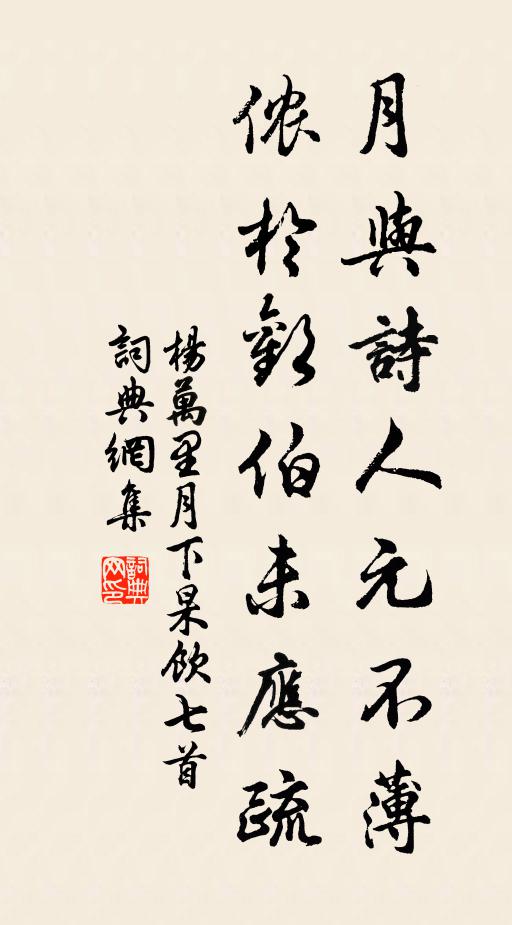 月與詩人元不薄
侬於歡伯未應疏
楊萬里月下杲飲七首
詞典網集
詞典
网印